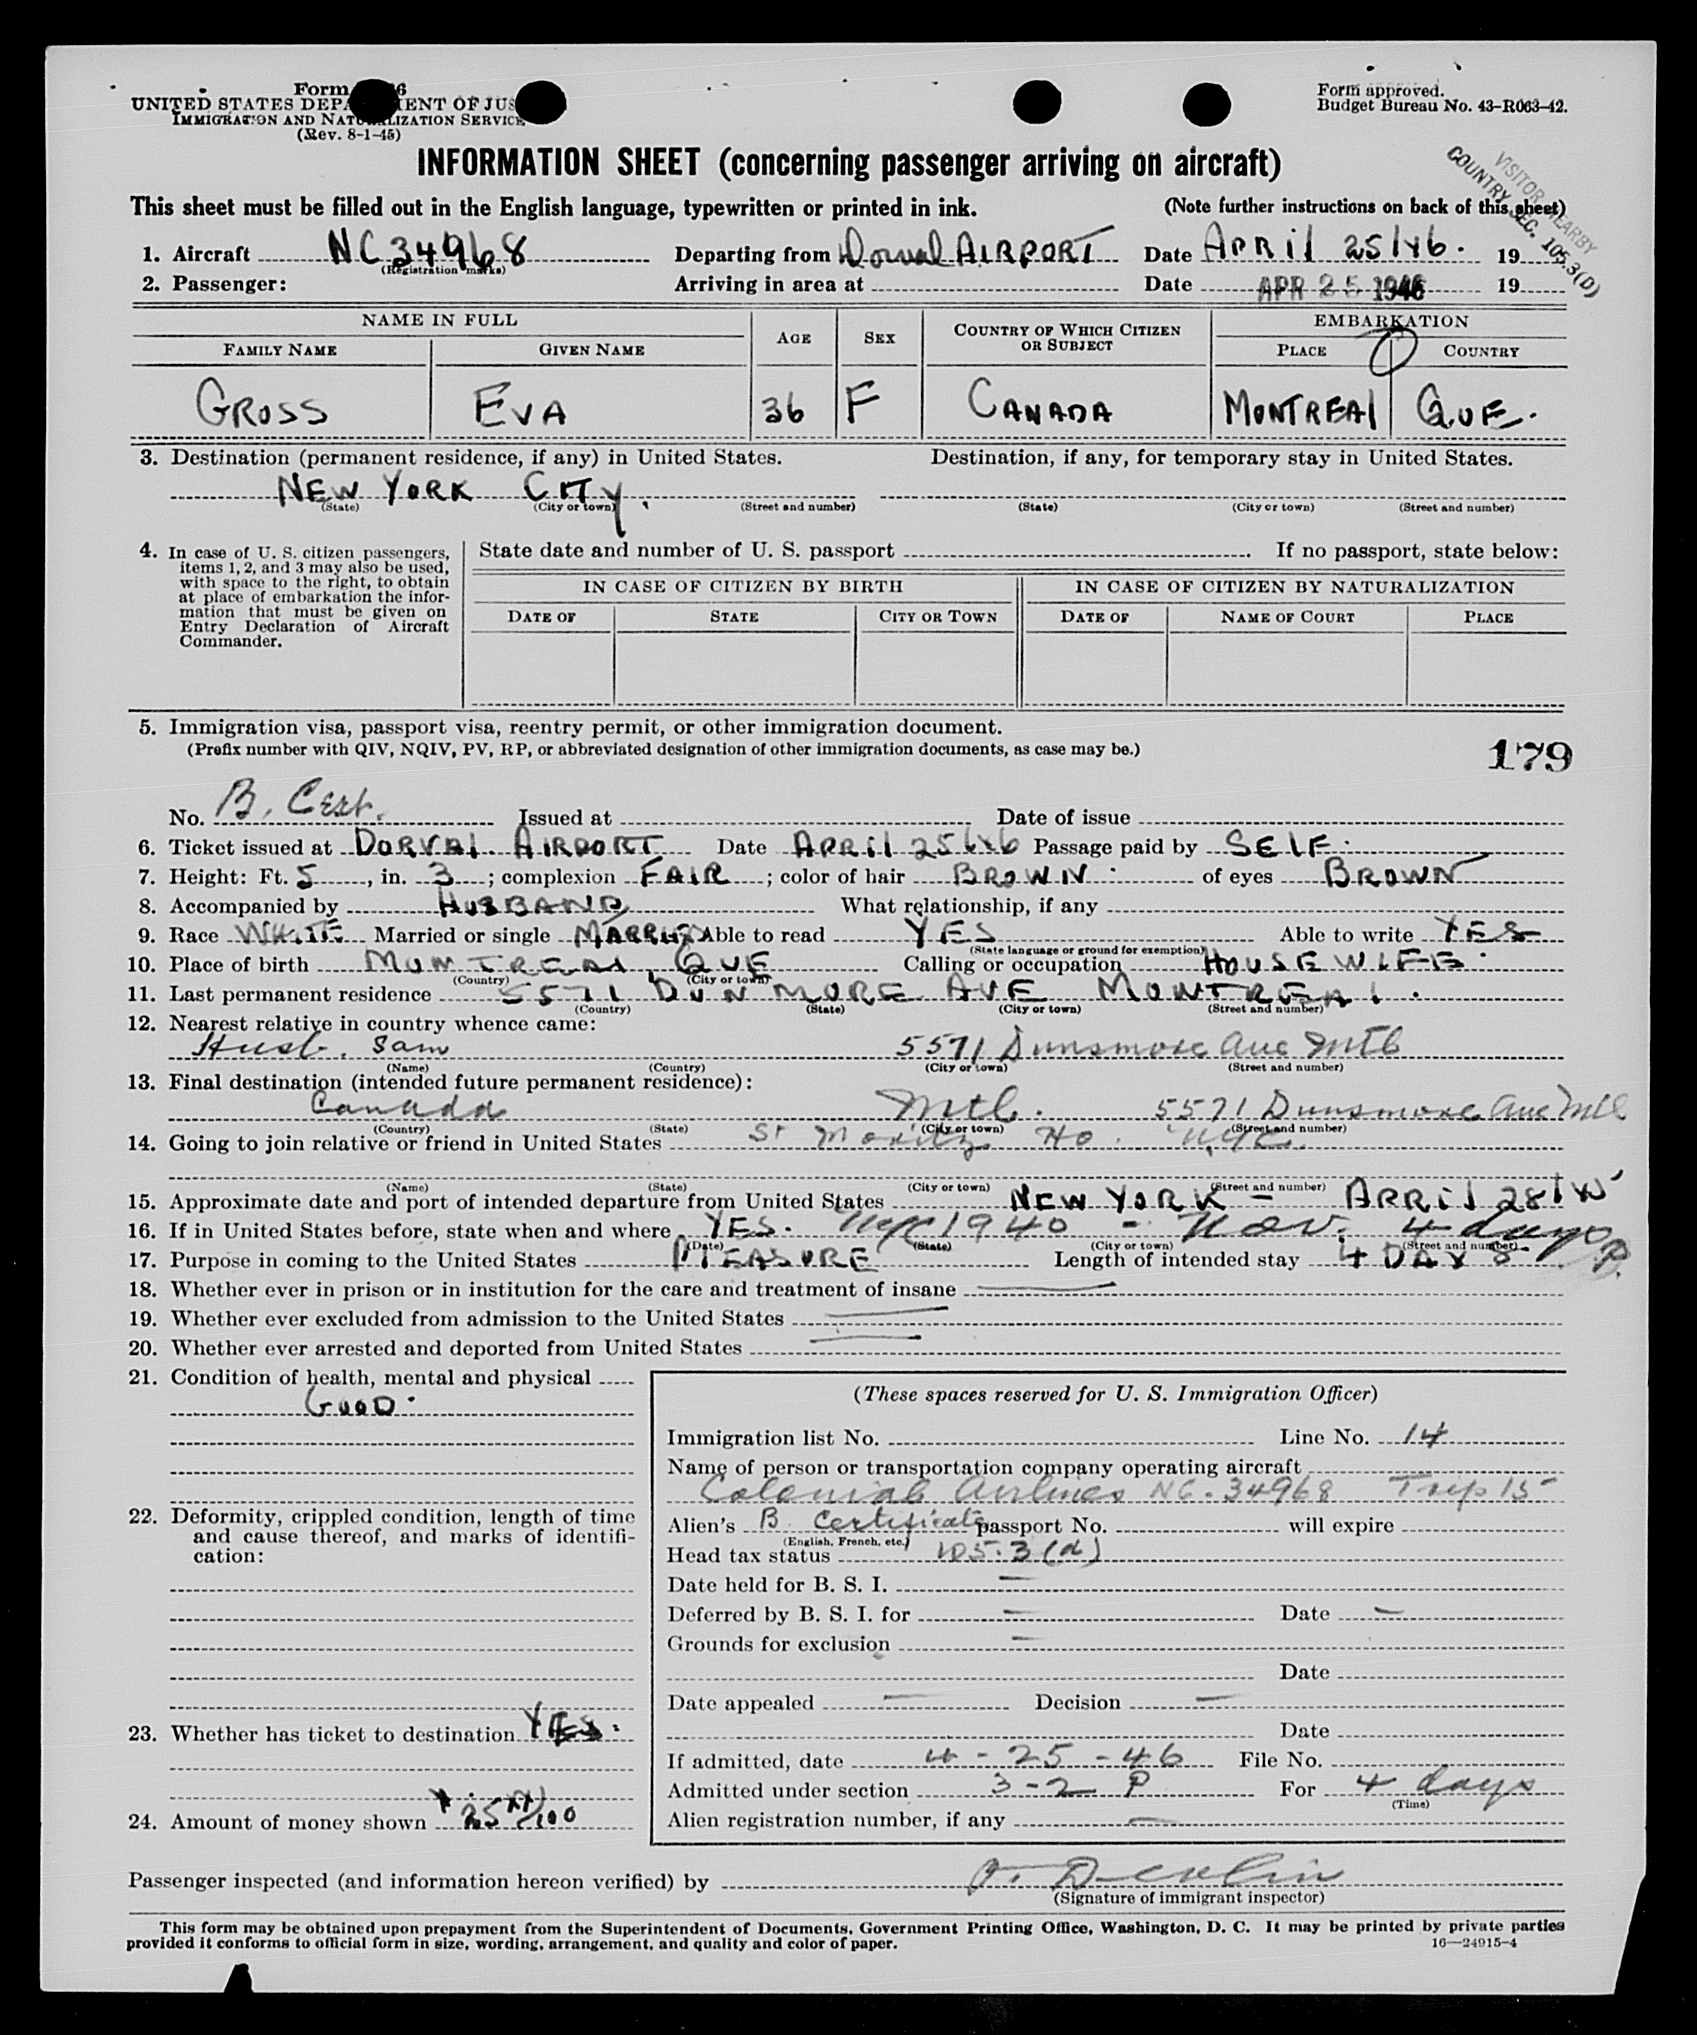 Form 6
UNITED STATES DEPA MENT OF JUS
IMMIGRATION AND NATU LIZATION SERVICE
(Rev. 8-1-45)
Form approved.
Budget Bureau No. 43-R063-42.
INFORMATION SHEET (concerning passenger arriving on aircraft)
VISITOR NEARBY
COUNTRY SEC. 105.3(D)
This sheet must be filled out in the English language, typewritten or printed in ink. (Note further instructions on back of this sheet)
1. Aircraft NC34968 Departing from Dorval AIRPORT Date APRil 25/46. 19
(Registration marks)
2. Passenger: Arriving in area at Date APR 25 1946 19
NAME IN FULL AGE SEX COUNTRY OF WHICH CITIZEN OR SUBJECT EMBARKATION
FAMILY NAME GIVEN NAME PLACE COUNTRY
GROSS EVA 36 F CANADA MONTREAl QUE.
3. Destination (permanent residence, if any) in United States. Destination, if any, for temporary stay in United States.
NEW YORK CITY.
(State) (City or town) (Street and number) (State) (City or town) (Street and number)
4. In case of U. S. citizen passengers, items 1, 2, and 3 may also be used, with space to the right, to obtain at place of embarkation the information that must be given on Entry Declaration of Aircraft Commander.
State date and number of U. S. passport . If no passport, state below:
IN CASE OF CITIZEN BY BIRTH IN CASE OF CITIZEN BY NATURALIZATION
DATE OF STATE CITY OR TOWN DATE OF NAME OF COURT PLACE
5. Immigration visa, passport visa, reentry permit, or other immigration document.
(Prefix number with QIV, NQIV, PV, RP, or abbreviated designation of other immigration documents, as case may be.)
179
No. B. Cert. Issued at Date of issue
6. Ticket issued at DORVAl. AIRPORT Date APRil 25/46 Passage paid by SElF.
7. Height: Ft. 5, in. 3; complexion FAIR; color of hair BROWN. of eyes BROWN
8. Accompanied by HUSBAND What relationship, if any
9. Race WHITE Married or single MARRIED Able to read YES Able to write YES
(State language or ground for exemption)
10. Place of birth MONTREAl, QUE Calling or occupation HOUSEWIFE.
(Country) (City or town)
11. Last permanent residence 5571 DUNMORE AVE MONTREAl.
(Country) (State) (City or town) (Street and number)
12. Nearest relative in country whence came:
Husb. Sam 5571 Dunsmore Ave Mtl
(Name) (Country) (City or town) (Street and number)
13. Final destination (intended future permanent residence):
Canada Mtl. 5571 Dunsmore Ave Mtl
(Country) (State) (City or town) (Street and number)
14. Going to join relative or friend in United States St Moritz Ho. NYC.
(Name) (State) (City or town) (Street and number)
15. Approximate date and port of intended departure from United States NEW YORK - APRil 28/46
16. If in United States before, state when and where YES. NYC 1940 - Nov. 4 days
(Date) (State) (City or town) (Street and number)
17. Purpose in coming to the United States PlEASURE Length of intended stay 4 DAYS P.
18. Whether ever in prison or in institution for the care and treatment of insane —
19. Whether ever excluded from admission to the United States —
20. Whether ever arrested and deported from United States —
21. Condition of health, mental and physical
GOOD.
22. Deformity, crippled condition, length of time and cause thereof, and marks of identification:
23. Whether has ticket to destination YES.
24. Amount of money shown $25 xx/100
(These spaces reserved for U. S. Immigration Officer)
Immigration list No. Line No. 14
Name of person or transportation company operating aircraft
Colonial Airlines NC-34968 Trip 15
Alien's B. Certificate passport No. will expire
(English, French, etc.)
Head tax status 105.3(d)
Date held for B. S. I. —
Deferred by B. S. I. for — Date —
Grounds for exclusion —
Date
Date appealed — Decision —
Date
If admitted, date 4-25-46 File No.
Admitted under section 3-2 P For 4 days
(Time)
Alien registration number, if any —
Passenger inspected (and information hereon verified) by Devlin
(Signature of immigrant inspector)
This form may be obtained upon prepayment from the Superintendent of Documents, Government Printing Office, Washington, D. C. It may be printed by private parties
provided it conforms to official form in size, wording, arrangement, and quality and color of paper.
16—24915-4